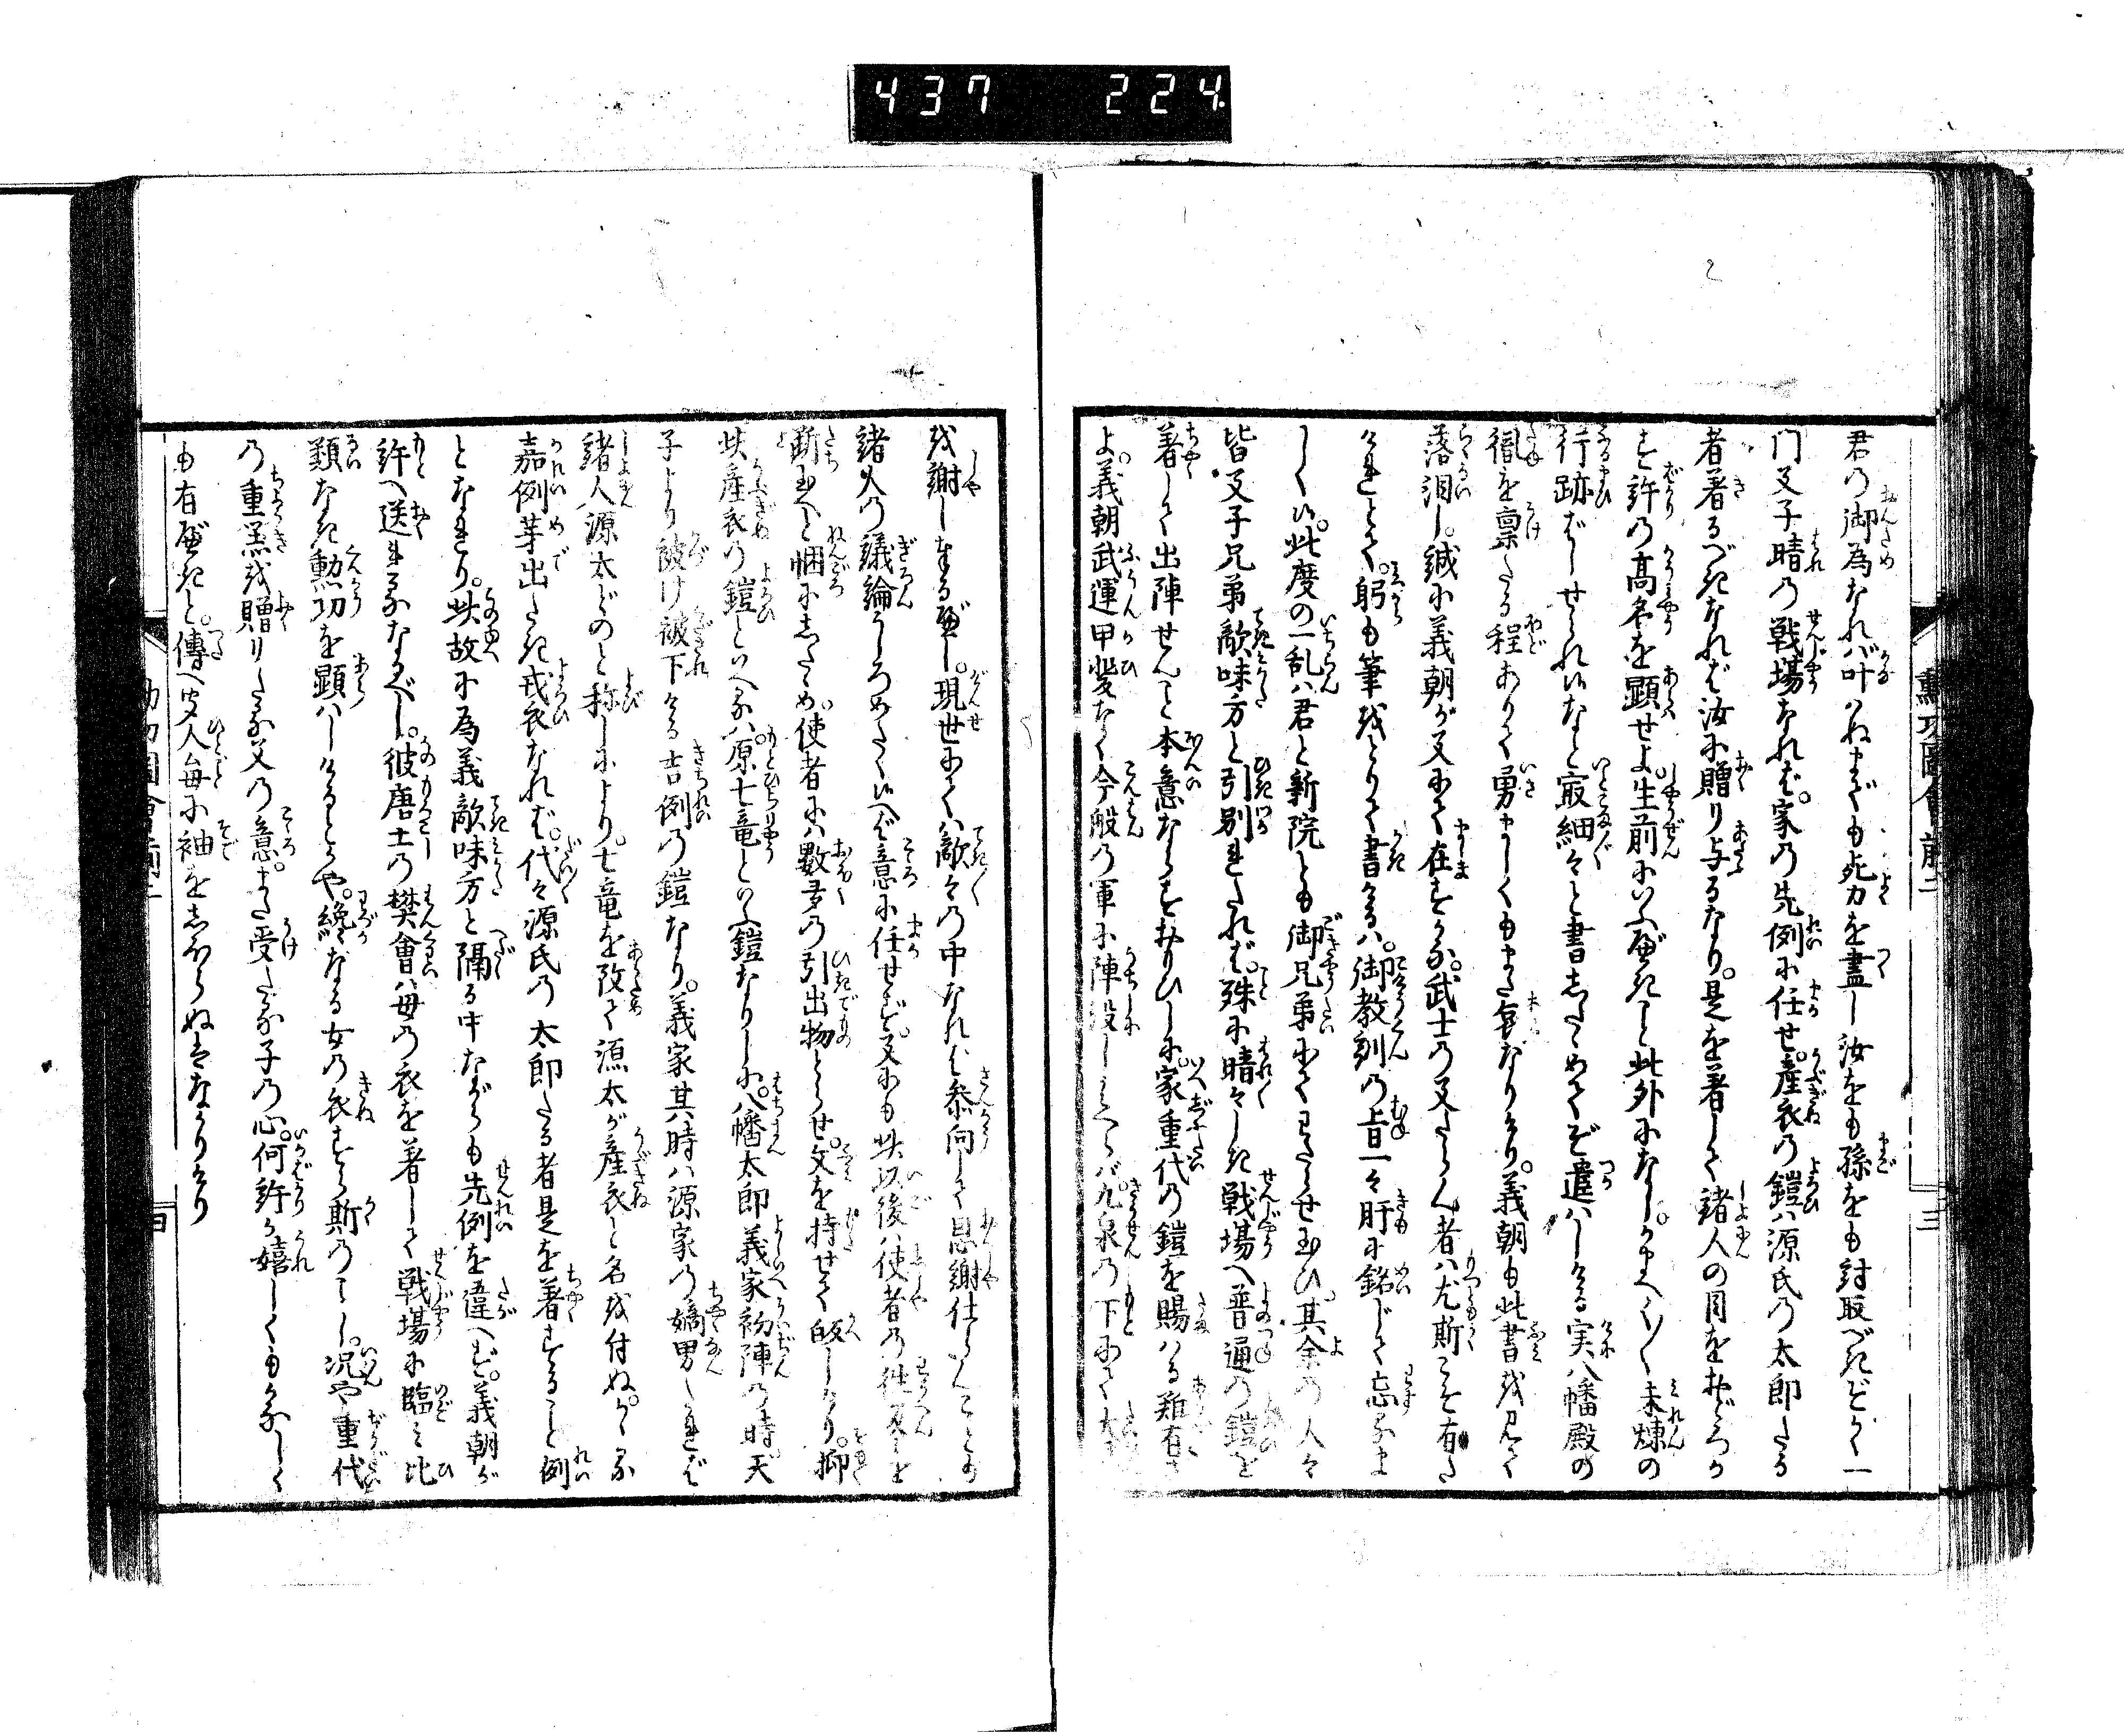 437 224.
君の御為なれバ叶ハぬまでも死力を盡し汝をも孫をも討取べきぞかく一
門父子晴の戦場なれば。家の先例に任せ。産衣の鎧ハ源氏の太郎たる
者着るべきなれば汝に贈り与るなり。是を着して諸人の目をおどろか
す許の高名を顕せよ生前にいふべきこと此外になし。かまへて〳〵未煉の
行跡ばしせられなと最細々と書したゝめてぞ遣ハしける実八幡殿の
胤を禀たる程ありて勇ましくもまた哀なりけり。義朝も此書を見て
落涙し。誠に義朝が父にて在すかな。武士の父たらん者ハ尤斯こそ有た
けれとて。躬も筆をとりて書けるハ。御教訓の旨一々肝に銘じて忘るま
じく候。此度の一乱ハ君と新院とも御兄弟にてわたらせ玉ひ。其余の人々
皆父子兄弟敵味方と引別れたれば。殊に晴々しき戦場へ普通の鎧を
着して出陣せんこと本意ならずおもひしに。家重代の鎧を賜ハる難有さ
よ。義朝武運甲斐なく今般の軍に陣没しさふらハヾ。九泉の下にて
を謝し奉るべし。現世にてハ敵々の中なれば参向して恩謝仕らんことの
諸人の議論うしろめたく候へば意に任せず。父にも此以後ハ使者の往返を
断玉へと悃にしたゝめ。使者にハ數多の引出物とらせ。文を持せて皈しけり。抑
此産衣の鎧といへるハ。原七竜といふ鎧なりしに。八幡太郎義家初陣の時。天
子より被け被下ける吉例の鎧なり。義家其時ハ源家の嫡男たれば
諸人源太どのと称しにより。七竜を改て源太が産衣と名を付ぬ。かゝる
嘉例芽出たき戎衣なれば。代々源氏の太郎たる者是を着すること例
となれり。此故に為義敵味方と隔る中ながらも先例を違へず。義朝が
許へ送れるなるべし。彼唐土の樊會ハ母の衣を着して戦場に臨み比
類なき勲功を顕ハしけるとかや。纔なる女の衣すら斯のごとし。况や重代
の重器を贈りたる父の意。また受たる子の心。何許か嬉しくもかなしく
も有べきと。傳へ聞人毎に袖をしぼらぬはなかりけり